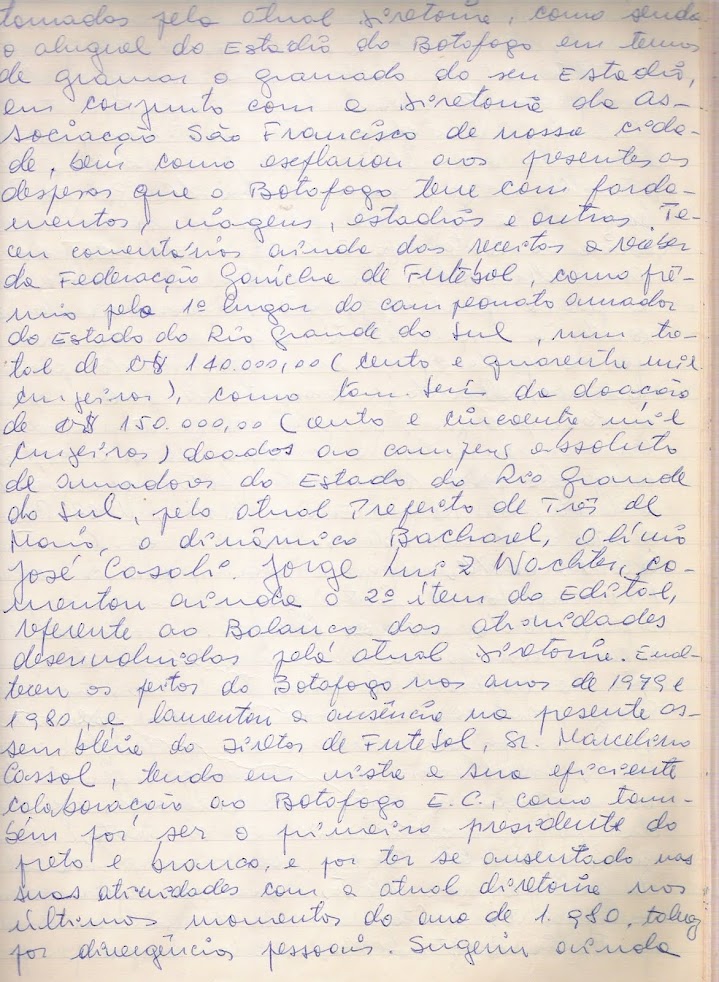 tomadas pela atual diretoria, como sendo
o aluguel do Estadio do Botafogo em temos
de gramar o gramado do seu Estadio,
em conjunto com a diretoria da As-
sociação São Francisco de nossa cida-
de, bem como explanou aos presentes as
despesas que o Botafogo teve com farda-
mentos, viagens, estadias e outras. Te-
ceu comentários ainda das receitas a receber
da Federação Gaúcha de Futebol, como prê-
mio pelo 1º lugar do campeonato amador
do Estado do Rio Grande do Sul, num to-
tal de Cr$ 140.000,00 (cento e quarenta mil
cruzeiros), como também da doação
de Cr$ 150.000,00 (cento e cincoenta mil
cruzeiros) doados ao campeão absoluto
de amadores do Estado do Rio Grande
do Sul, pelo atual Prefeito de Três de
Maio, o dinâmico Bacharel, Olinio
José Casali. Jorge Luiz Wachter, co-
mentou ainda o 2º ítem do Edital,
referente ao Balanço das atividades
desenvolvidas pela atual diretoria. Enal-
teceu os feitos do Botafogo nos anos de 1979 e
1980, e lamentou a ausência na presente as-
sembléia do Diretor de Futebol, Sr. Marcelino
Cassol, tendo em vista a sua eficiente
colaboração ao Botafogo E.C., como tam-
bém por ser o primeiro presidente do
preto e branco, e por ter se ausentado nas
suas atividades com a atual diretoria nos
últimos momentos do ano de 1.980, talvez
por divergências pessoais. Sugeriu ainda